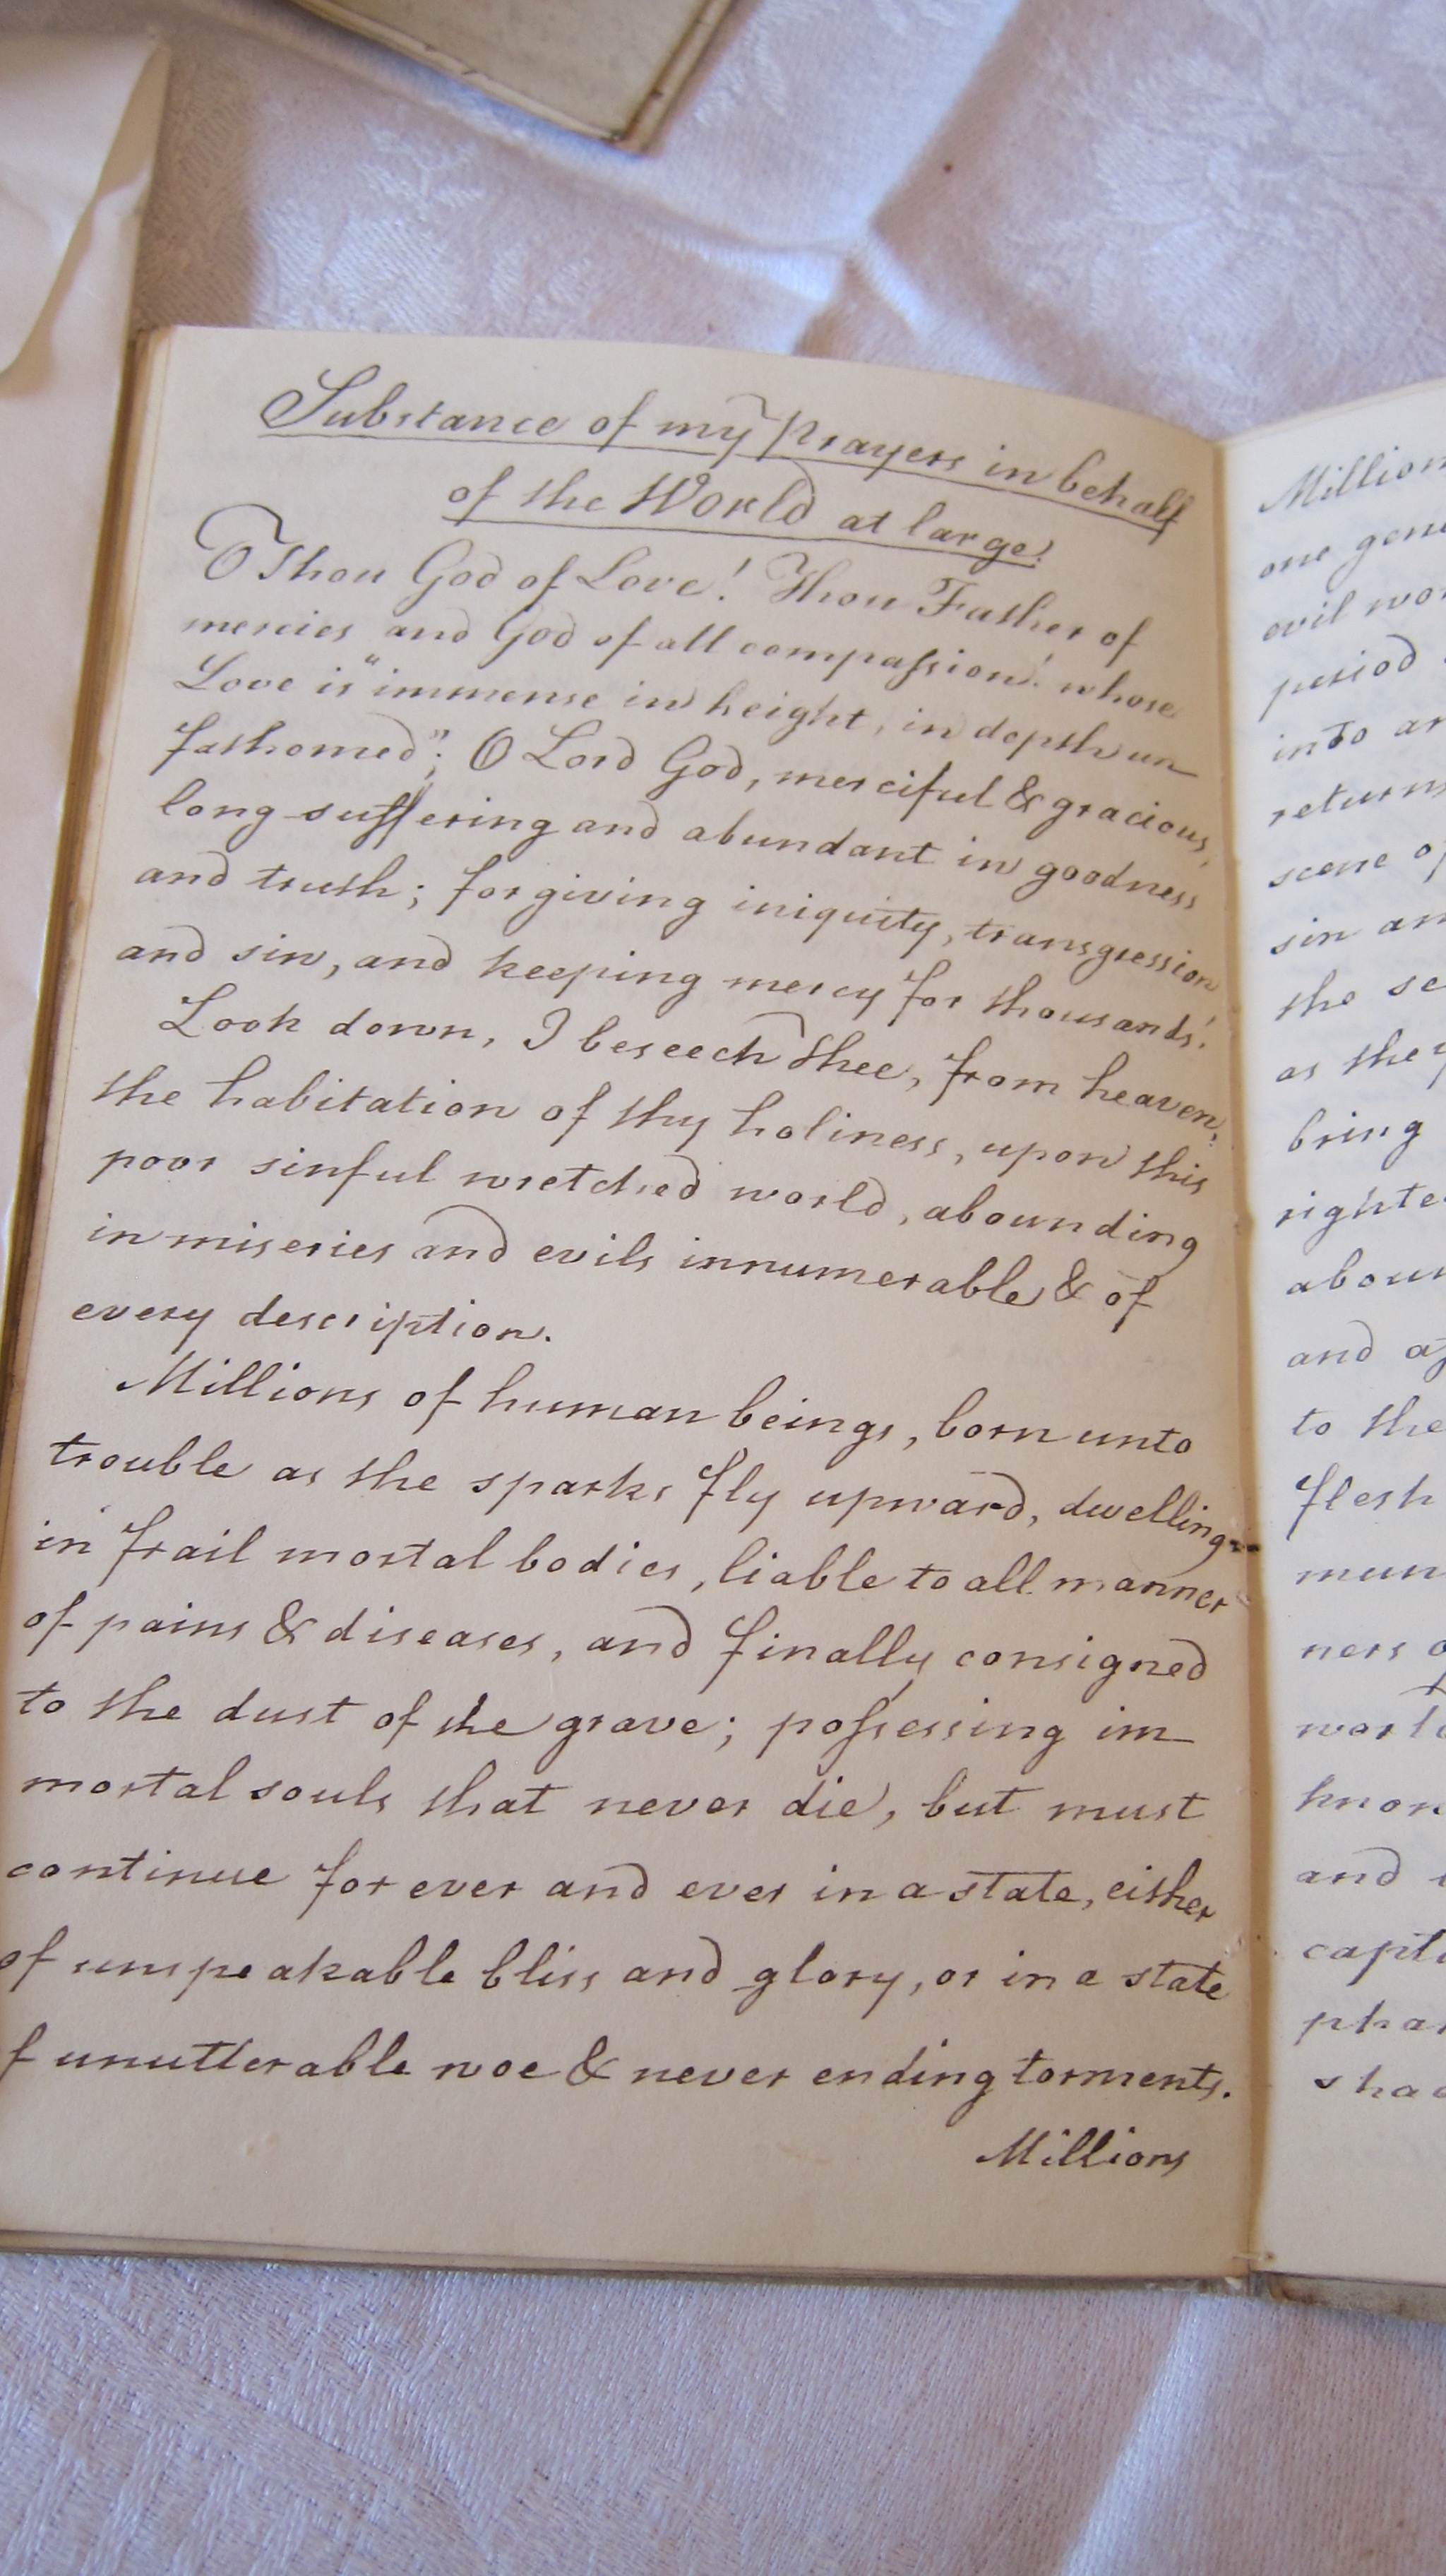 Substance of my Prayers in behalf
of the World at large!
O Thou God of Love! Thou Father of
mercies and God of all compaſsion! whose
Love is "immense in height, in depth un
fathomed"; O Lord God, merciful & gracious,
long suffering and abundant in goodness
and truth; forgiving iniquity, transgression
and sin, and keeping mercy for thousands!
Look down, I beseech thee, from heaven,
the habitation of thy holiness, upon this
poor sinful wretched world, abounding
in miseries and evils innumerable & of
every description.
Millions of human beings, born unto
trouble as the sparks fly upward, dwelling
in frail mortal bodies, liable to all manner
of pains & diseases, and finally consigned
to the dust of the grave; poſsessing im
mortal souls that never die, but must
continue for ever and ever in a state, either
of unspeakable bliss and glory, or in a state
f unutterable woe & never ending torments.
Millions
Million
one gene
evil wor
period
into ar
return
scene
sin an
the se
as they
bring
righte
abour
and
to the
flesh
mun
ners
worl
know
and
capt
phar
shad